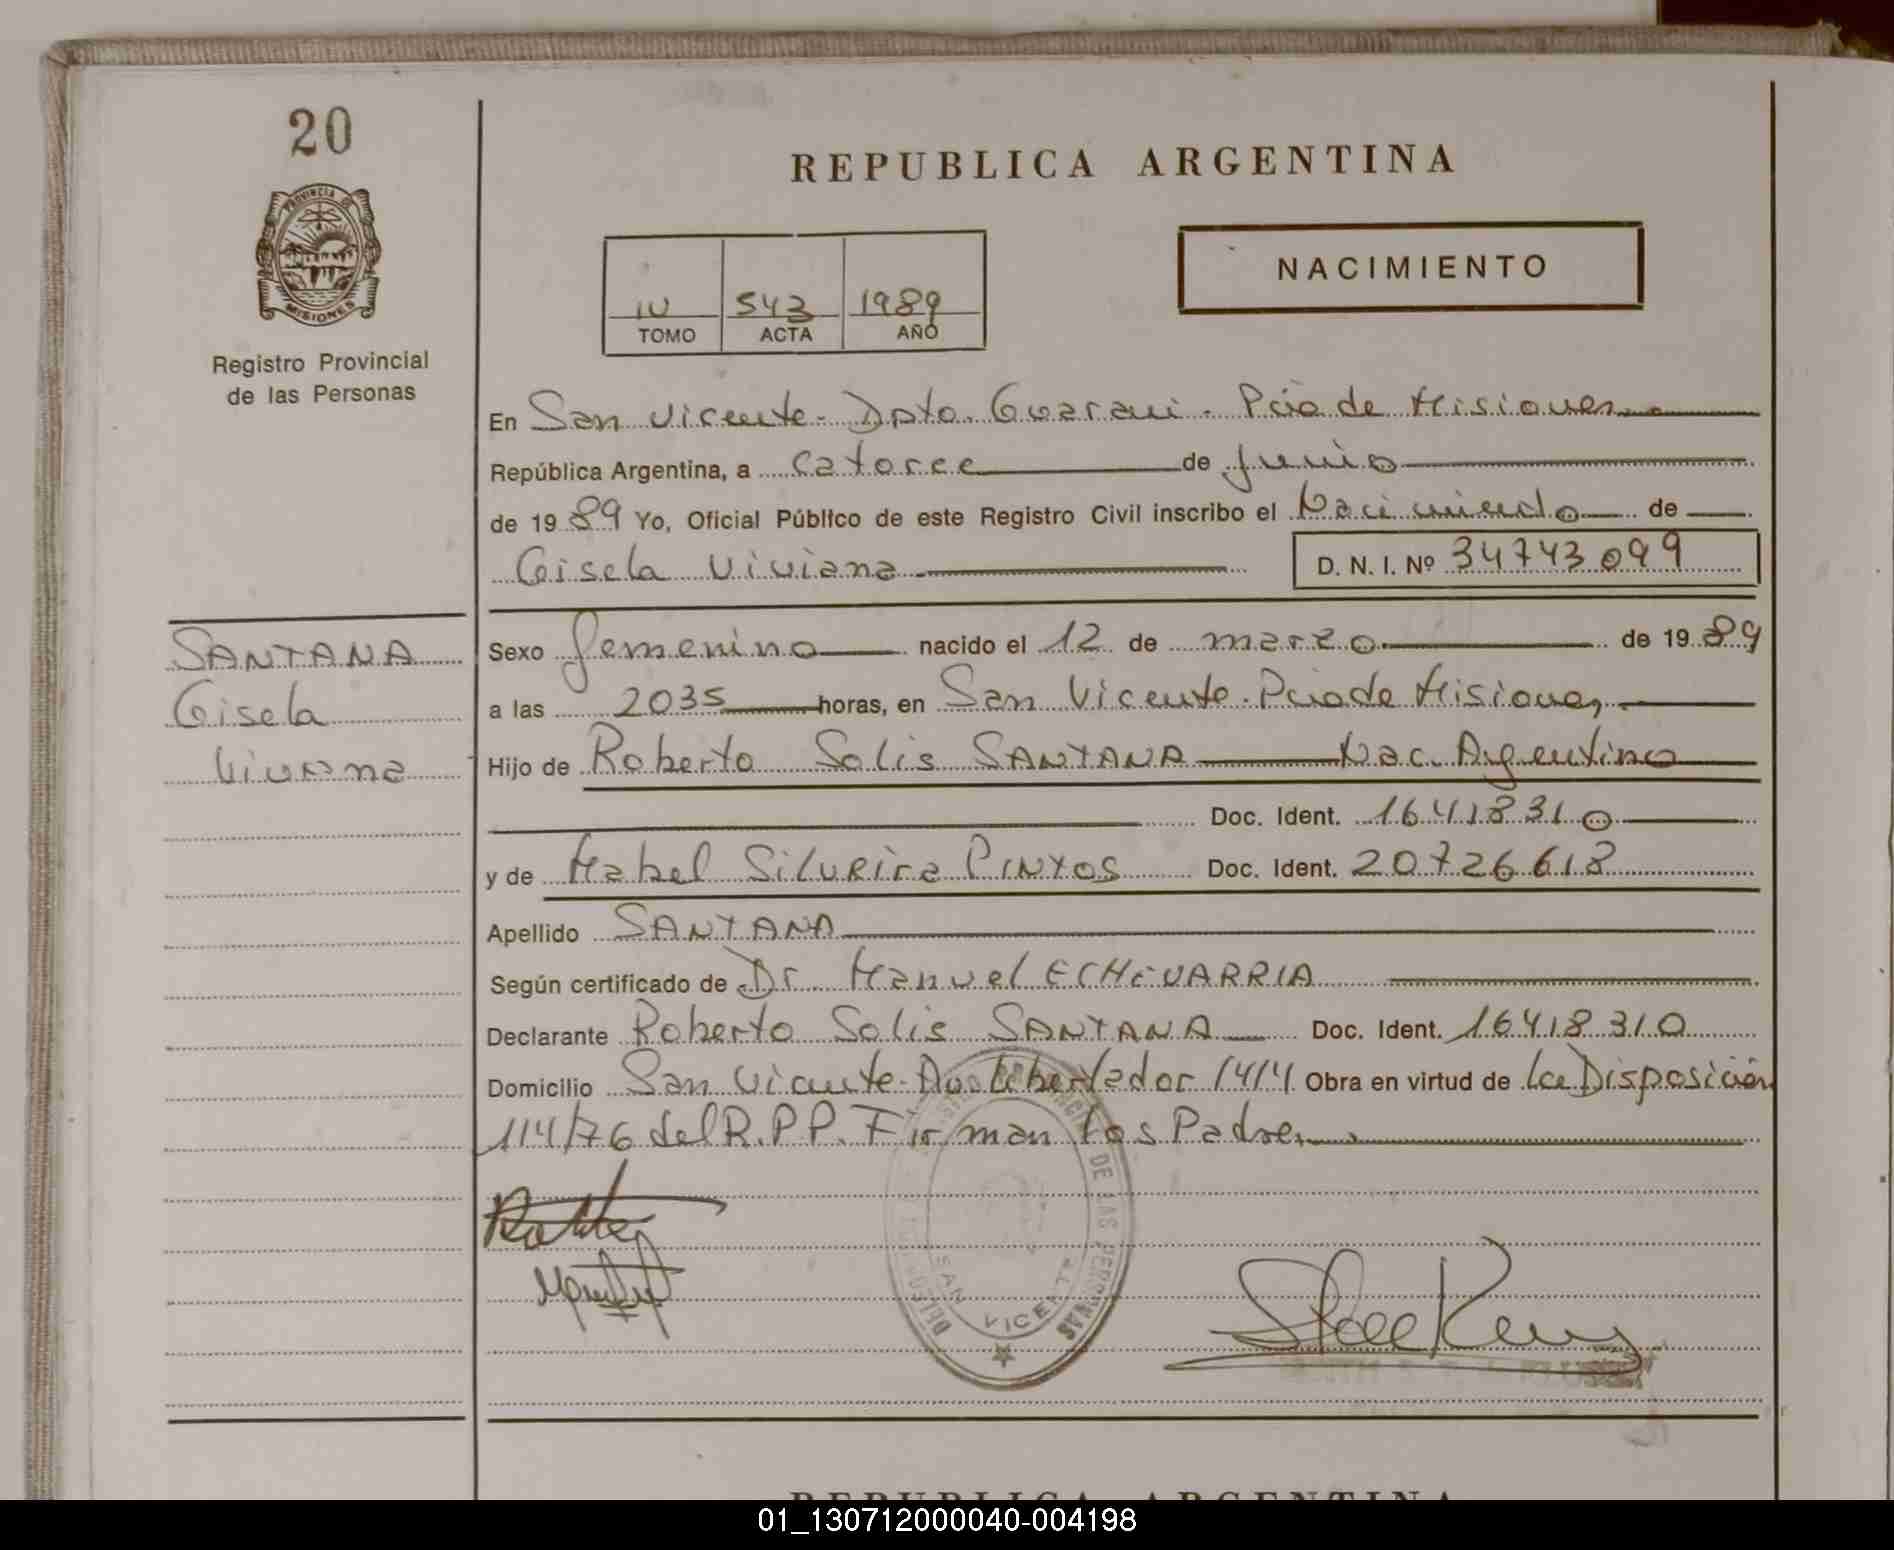 20
PROVINCIA DE
MISIONES
Registro Provincial
de las Personas
REPUBLICA ARGENTINA
IV 543 1989
TOMO ACTA AÑO
NACIMIENTO
En San Vicente - Dpto. Guarani - Pcia de Misiones
República Argentina, a catorce de junio
de 1989 Yo, Oficial Público de este Registro Civil inscribo el Nacimiento de
Gisela Viviana D. N. I. Nº 34743099
SANTANA
Gisela
Viviana
Sexo femenino nacido el 12 de marzo de 1989
a las 2035 horas, en San Vicente - Pcia de Misiones
Hijo de Roberto Solis SANTANA Nac. Argentino
Doc. Ident. 16418310
y de Mabel Silveira PINTOS Doc. Ident. 20726618
Apellido SANTANA
Según certificado de Dr. Manuel ECHEVARRIA
Declarante Roberto Solis SANTANA Doc. Ident. 16418310
Domicilio San Vicente - Av. Libertador 1414 Obra en virtud de la Disposición
114/76 del R.P.P. Firman los Padres
DE LAS PERSONAS
SAN VICENTE
REPUBLICA ARGENTINA
01_130712000040-004198